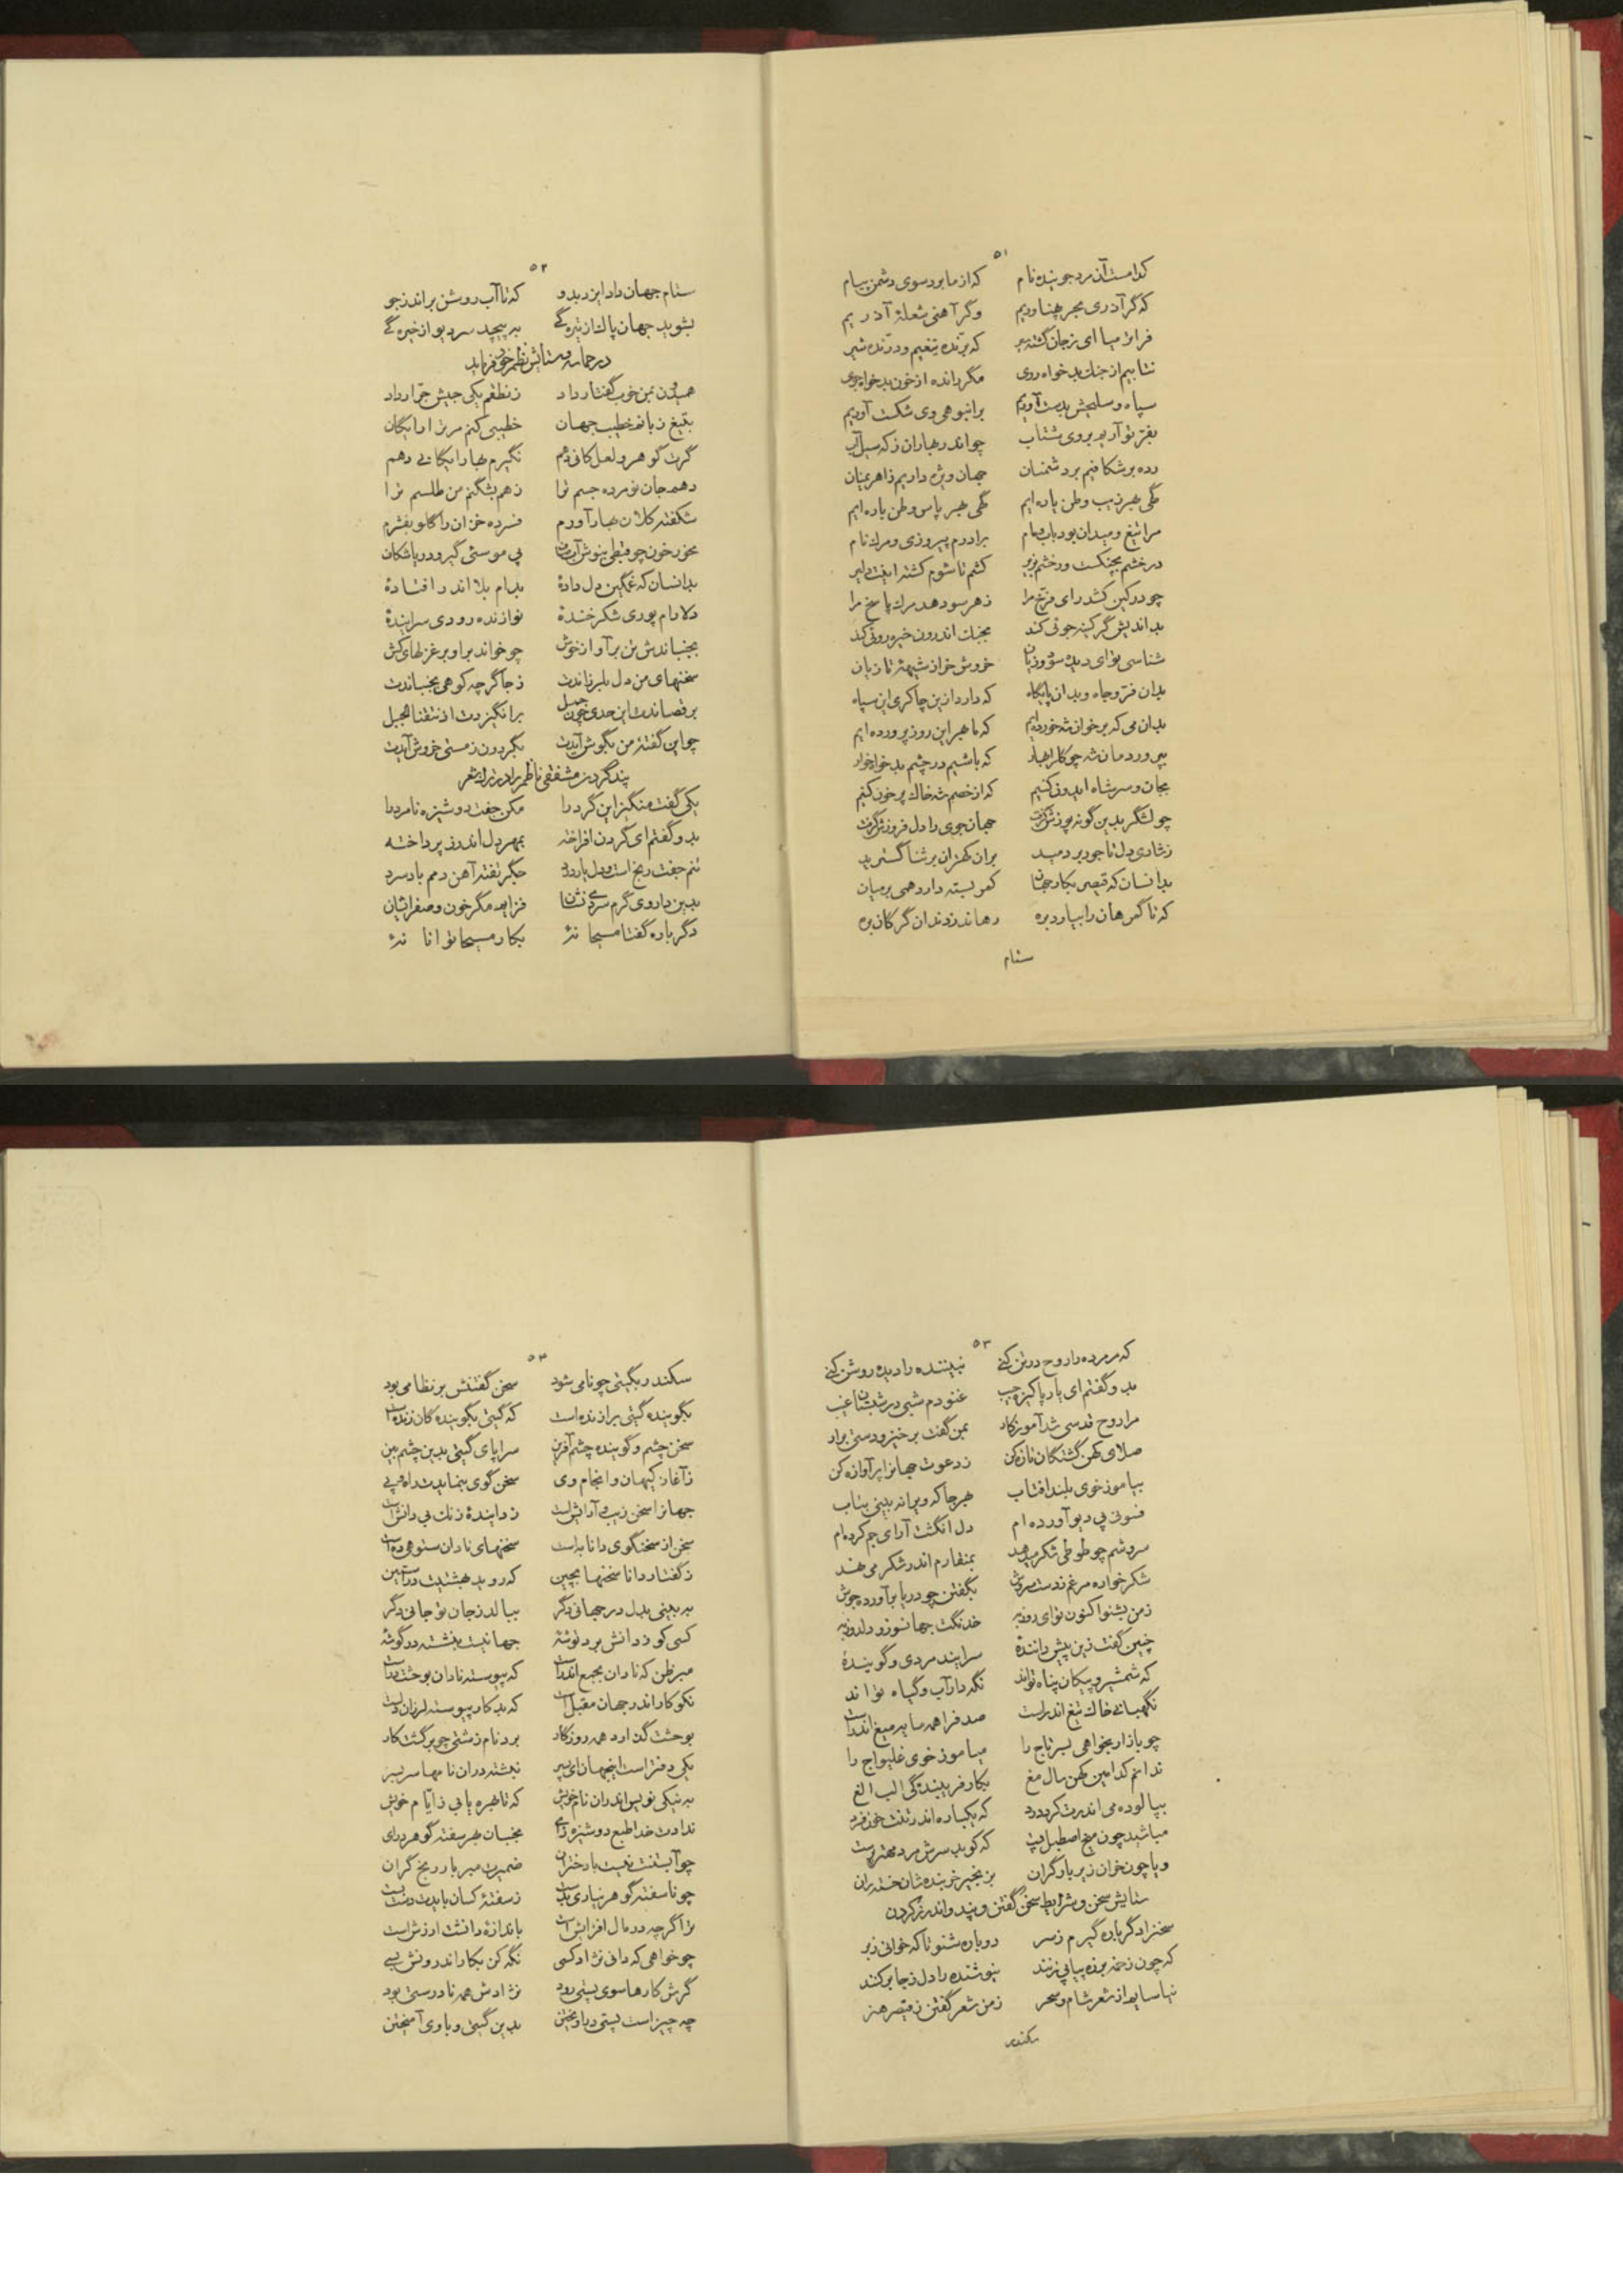 ۵۱
کدامست آن مرد جوینده نام که از ما برد سوی دشمن پیام
که گر آذری مجمر چناوریم وگر آهنی شعلهٔ آذریم
فراتر میا ای ز جان گشته سیر که برنده تیغیم و درنده شیر
نتابیم از جنک بدخواه روی مگر رانده از خون بدخواه جوی
سپاه و سلیحش بدست آوریم بر انبوهی وی شکست آوریم
بفر تو آریم بروی شتاب چو اندر بهاران ز که سیل آب
رده بر شکافیم بر دشمنان جهان ویژه داریم ز اهریمنان
گهی بهر زیب وطن یاره ایم گهی بهر پاس وطن باره ایم
مرا تیغ و میدان بود باب و مام برادرم پیروزی و مرک نام
کشم تا شوم کشته اینت دلیر
چو در کین کشد رای فرخ مرا ز هر سو دهد مرک پاسخ مرا
بداندیش گر کینه جوئی کند بجنک اندرون خیره روئی کند
شناسی تو ای دیده سود و زیان خروش خر از شیههٔ تازیان
بدان فر و جاه و بدان پایگاه که دارد ازین چاکری این سپاه
بدان می که بر خوان شه خورده ایم که ما بهر این روز پرورده ایم
که باشیم در چشم بدخواه خوار
بجان و سر شاه ایدون کنیم که از خصم شه خاک پر خون کنیم
چو لشگر بدین گونه پوزش گرفت جهانجوی را دل فروزش گرفت
ز شادی دل تاجور بردمید بران کهتران بر ثنا گسترید
بدانسان که قیصر بکار جهان کمر بسته دارد همی بر میان
که تا گمرهان را بیاورد بره رهاند ز دندان گرگان بره
ستام
۵۲
ستام جهان داد ایزد بدو که تا آب روشن براند ز جو
بشوید جهان پاک از تیره‌گی بپیچد سر دیو از خیره‌گی
در حماسه و ستایش نظم خود فرماید
همیدون بمن خوب گفتار داد ز نطقم یکی جیش جرار داد
بتیغ زبانم خطیب جهان خطیبی کنم مر ترا رایگان
گرت گوهر و لعل کانی دهم نگیرم بها رایگانی دهم
دهم جان نو مرده جسم ترا ز هم بشگنم من طلسم ترا
شکفته گلان بهار آورم فسرده خزان را گلو بفشرم
بدانسان که غمگین دل دادهٔ بدام بلا اندر افتادهٔ
دلارام پوری شکر خندهٔ نوازنده رودی سرایندهٔ
بجنباندش تن برآواز خوش چو خواند برا و بر غزلهای کش
سخنهای من دل بلرزاندت ز جا گرچه کوهی بجنباندت
برقصاندت این حدی چون جمل برانگیزدت از نتقنا الجبل
چو این گفتهٔ من بگوش آیدت بگردون ز مستی خروش آیدت
پند کردن مشفقی ناظم را در ترک شعر
یکی گفت منگیز این گرد را مکن جفت دوشیزه نامرد را
بدو گفتم ای گردن افراخته بمهر دل اندر نپرداخته
تنم جفت رنج است و دل یار درد جگر تفته آهن دمم باد سرد
بدین داروی گرم سردی نشان فزاید مگر خون و صفراییان
دگر باره گفتا مسیحا نهٔ بکار مسیحا توانا نهٔ
۵۳
که مر مرده را روح در تن کنی نبیننده را دیده روشن کنی
بدو گفتم ای یار پاکیزه جیب غنودم شبی در شبستان غیب
مرا روح قدسی شد آموزگار بمن گفت برخیز و دستی برآر
صلای کهن گشتگان تازه کن ز دعوت جهانرا پر آوازه کن
بیاموز خوی بلند آفتاب بهر جا که ویرانه بینی بتاب
فسونی پی دیو آورده ام دل انگشت آرای جم کرده ام
سروشم چو طوطی شکر میدهد بمنقارم اندر شکر می نهد
شکر خواره مرغم ز دست سروش بگفتن چو دریا برآورده جوش
ز من بشنو اکنون تو ای روزبه خدنگت جهانسوز و دلدوز به
چنین گفت زین پیش دانندهٔ سراینده مردی و گویندهٔ
که شمشیر و پیکان پناه تواند نگهدار آب و گیاه تواند
نگهبانی خاک تیغ اندر است صدف را همه مایه میغ اندر است
چو بازار بخواهی بسر تاج را میاموز خوی غلیواج را
ندانم کدامین کهن سال مغ بکار فریبندگی الب الغ
بپالوده می اندرت کرد درد که یکباره اندر تنت خون فسرد
میاشید چون میخ اصطبل پست که کوبد سرش مرد مهتر پرست
و یا چون خران زیر بار گران بزنجیر خربنده شان خشتران
ستایش سخن و شرایط سخن گفتن و پند و اندرز کردن
سخنرا دگر باره گیرم ز سر دوباره شنو تا که خوانی ز بر
که چون زخمه بر زه پیاپی زنند نیوشنده را دل ز جا برکنند
نیاساید از شعر شام و سحر ز من شعر گفتن ز قیصر هنر
سکندر
۵۴
سکندر بگیتی چو نامی شود سخن گفتنش بر نظامی بود
بگوینده گیتی برازنده است که گیتی بگوینده گان زنده است
سخن چشم و گوینده چشم آفرین سراپای گیتی بدین چشم بین
ز آغاز کیهان و انجام وی سخن گوی بنمایدت راه و پی
جهانرا سخن زیب و آرایش است زدایندهٔ زنک بی دانش است
سخن از سخنگوی دانا به است سخنهای نادان ستوهی ده است
ز گفتار دانا سخنها بچین که روید بهشتیت در آستین
ببینی بدل در جهانی دگر ببالد ز جان تو جانی دگر
کسی کو ز دانش برد توشهٔ جهانیست بنشسته در گوشهٔ
مبر ظن که نادان بجمع اندر است که پیوسته نادان بوحشت در است
نکوکار اندر جهان مقبل است که بدکار پیوسته لرزان دلست
بوحشت گذارد همه روزگار برد نام زشتی چو برگشت کار
یکی دفتر است اینجهان ای پسر نبشته در آن نامها سر بسر
به نیکی نویس اندران نام خویش که تا بهره یابی ز ایام خویش
ندادت خدا طبع دوشیزه زای
چو آبستنت نیست بار دختران ضمیرت مبر بار رنج گران
چو ناسفته گوهر نیاری بدست ز سفتهٔ کسان بایدت دست بست
ترا گرچه در مال افزایش است باندازهٔ دانشت ارزش است
چو خواهی که دانی نژاد کسی نگه کن بکار اندرونش بسی
گرش کارها سوی پستی رود نژادش همه نادرستی بود
چه چیز است پستی درآویختن بدین گیتی و باوی آمیختن